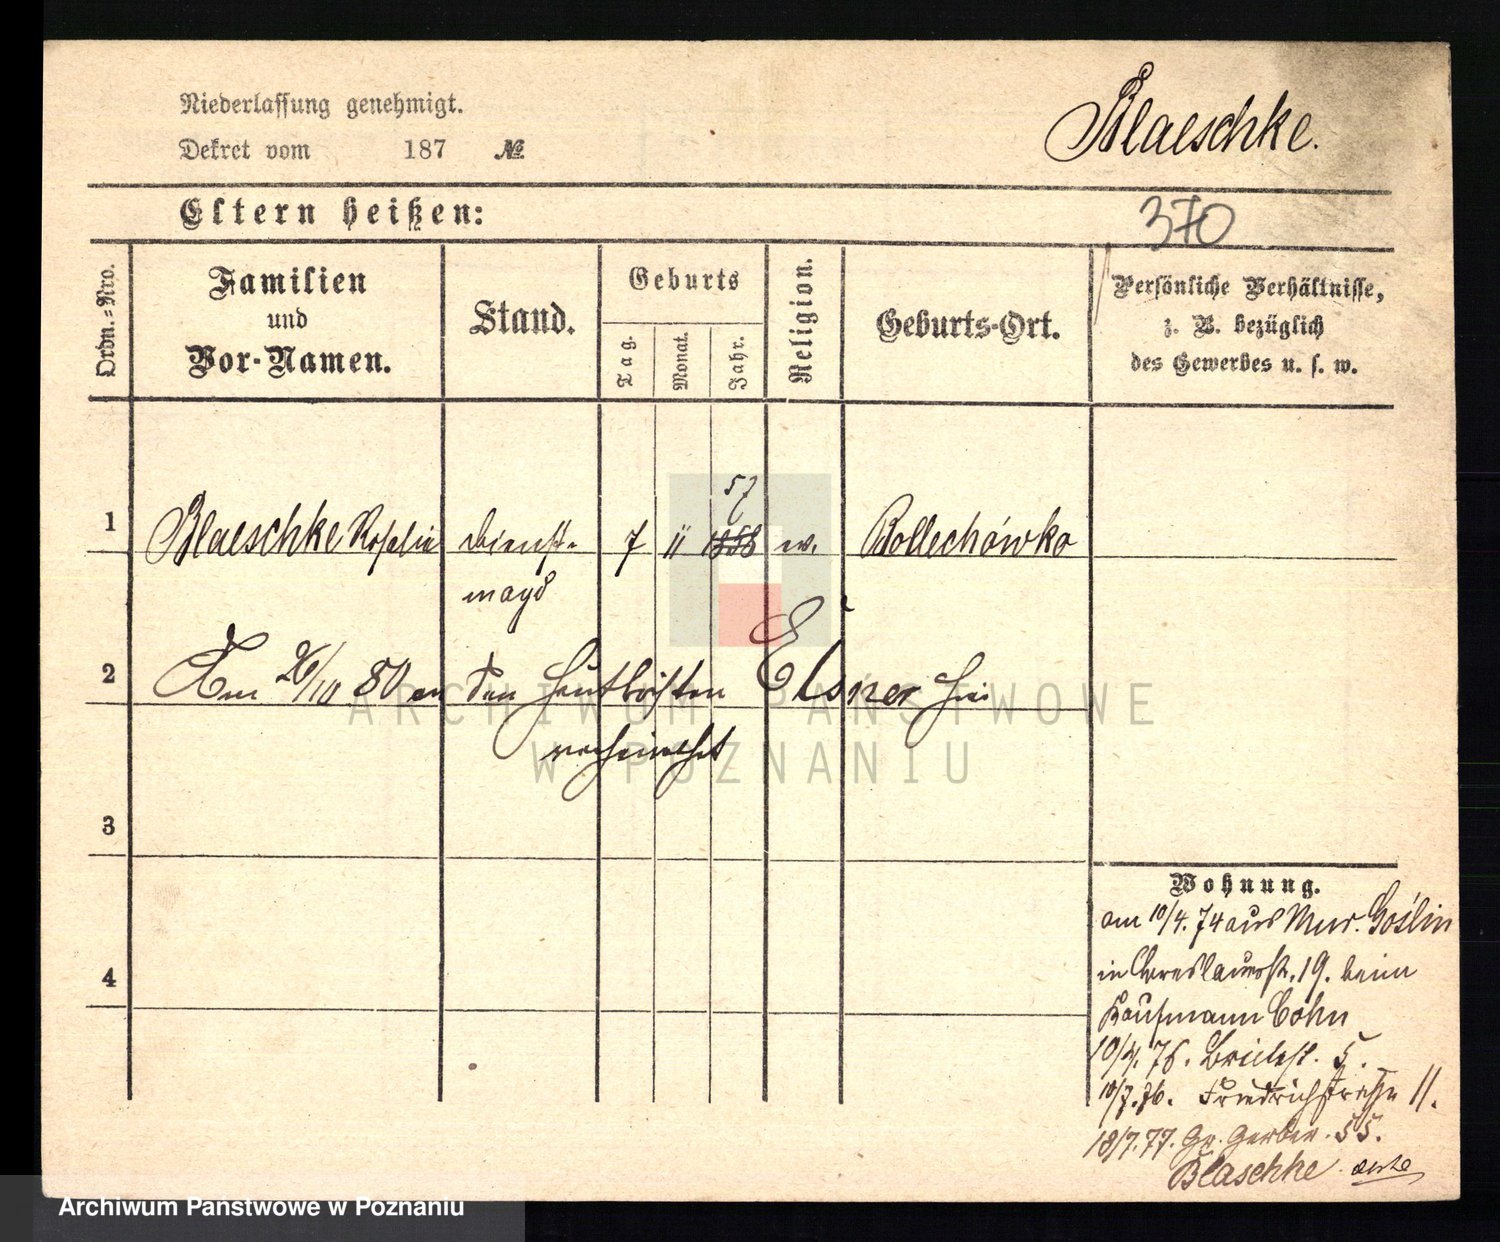 Niederlassung genehmigt.
Blaeschke.
Dekret vom 187 №
Eltern heißen:
370
Ordn.-Nro.
Familien
und
Vor-Namen.
Stand.
Geburts
Tag.
Monat.
Jahr.
Religion.
Geburts-Ort.
Persönliche Verhältnisse,
z. B. bezüglich
des Gewerbes u. s. w.
57
1 Blaeschke Rosalie Dienst- 7 11 1858 ev. Bollechówko
magd
2 Am 26/10 80 an den Hautboisten Elsner hier
verheirathet
3
4
Wohnung.
am 10/4. 74 aus Mur. Goślin
in Breslauerstr. 19. beim
Kaufmann Cohn
10/4. 76. Breitestr. 5.
10/7. 76. Friedrichstraße 11.
18/7. 77. Gr. Gerber. 55.
Blaschke
ARCHIWUM PAŃSTWOWE
W POZNANIU
Archiwum Państwowe w Poznaniu